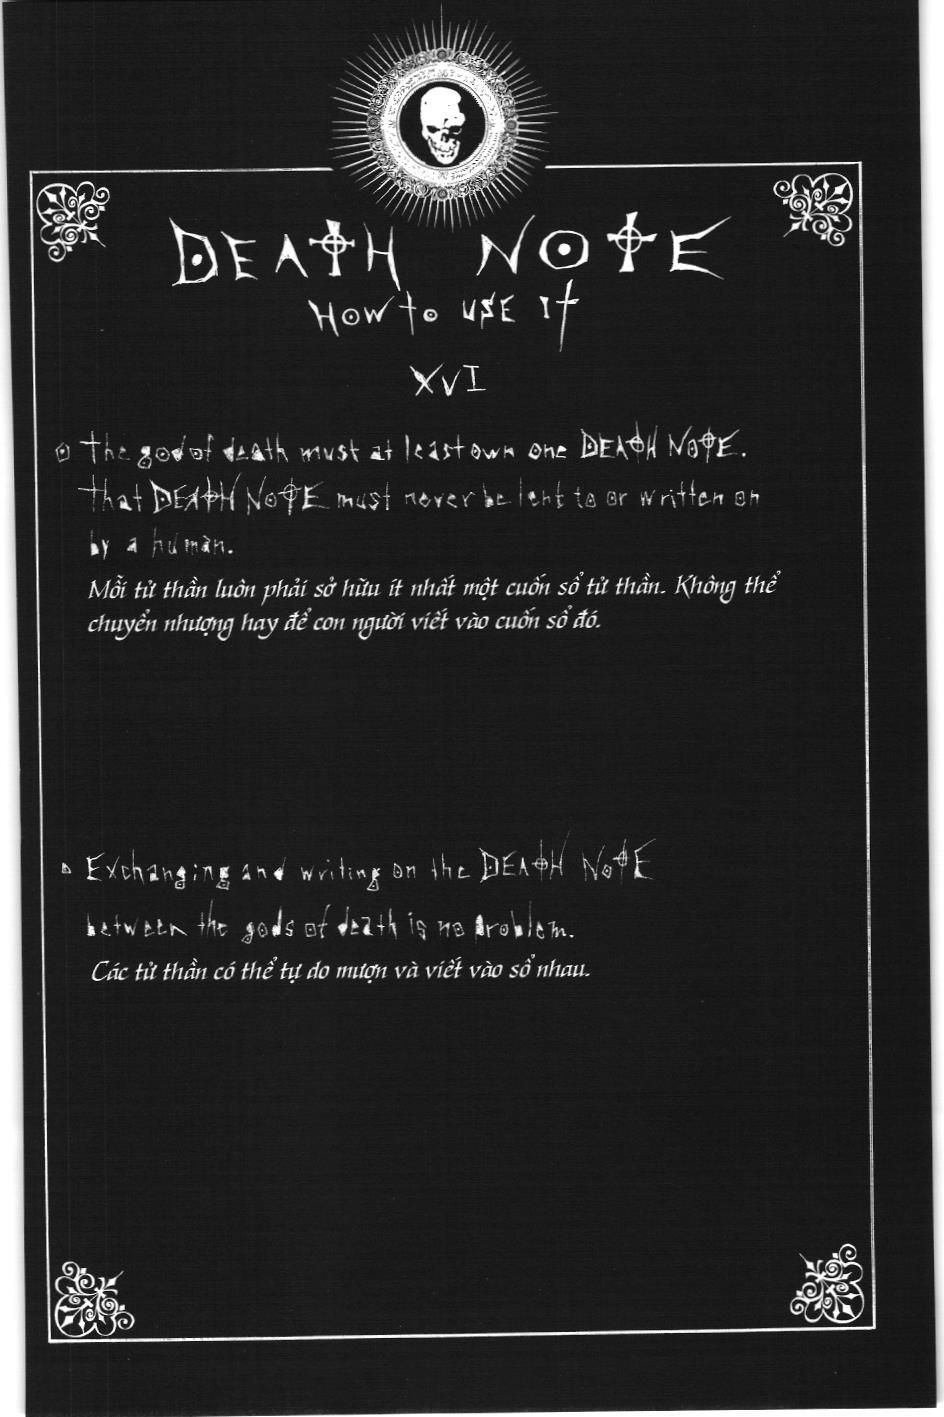 DEATH NOTE
HOW to USE It
XVI
The god of death must at least own one DEATH NOTE.
That DEATH NOTE must never be lent to or written on
by a human.
Mỗi tử thần luôn phải sở hữu ít nhất một cuốn sổ tử thần. Không thể
chuyển nhượng hay để con người viết vào cuốn sổ đó.
Exchanging and writing on the DEATH NOTE
between the gods of death is no problem.
Các tử thần có thể tự do mượn và viết vào sổ nhau.